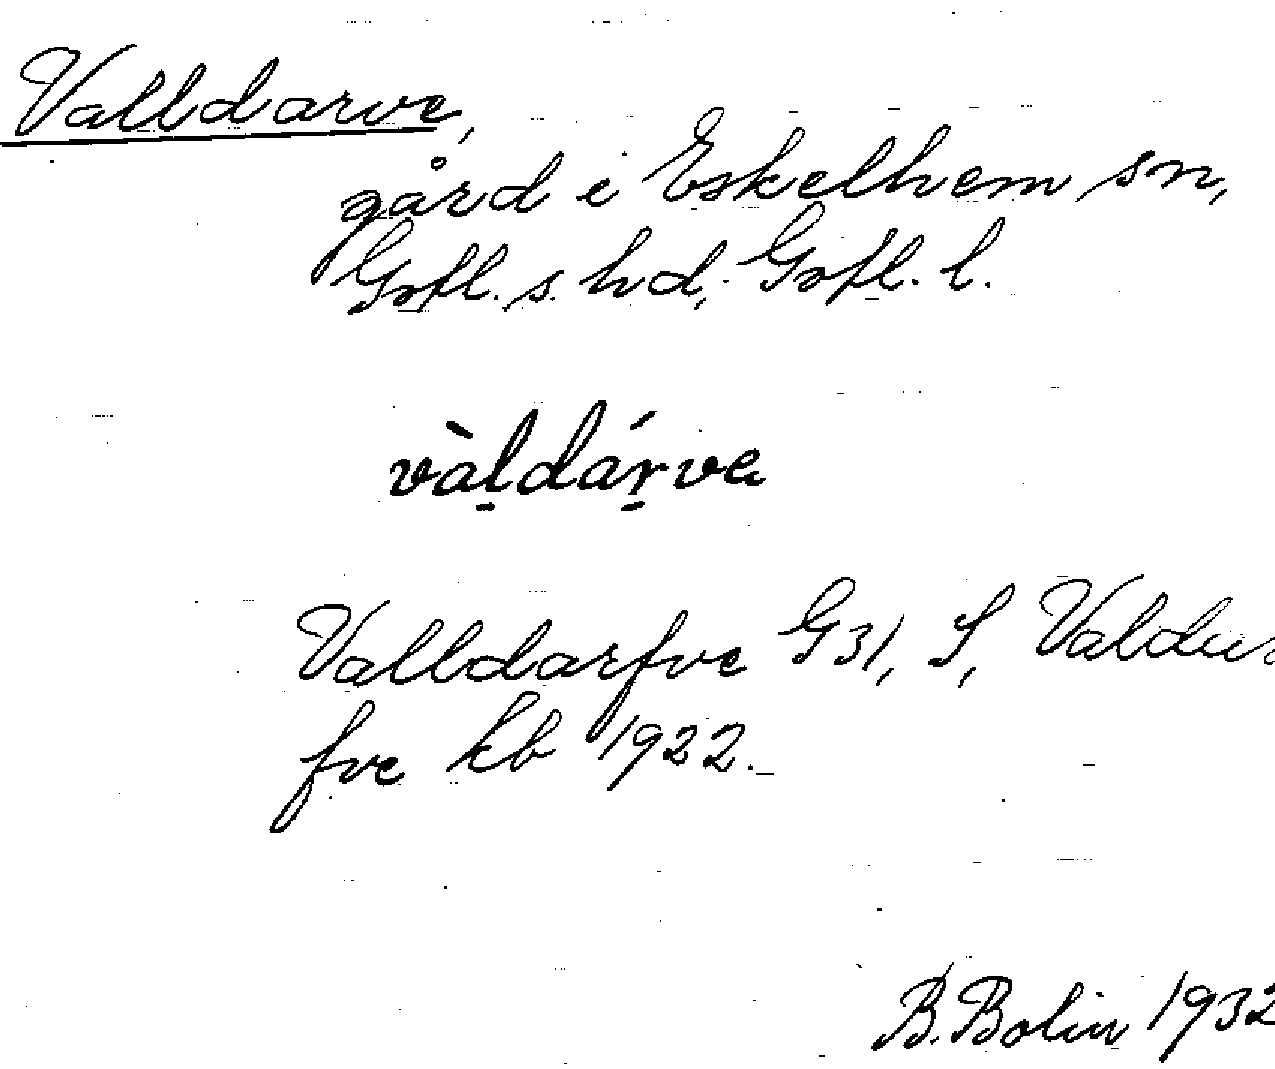 Valldarve,
gård i Eskelhem sn,
Gotl. s. hd, Gotl. l.
vàḷdáṛvɐ
Valldarfve G31, S, Valdar
fve kb 1922.
B. Bolin 1932